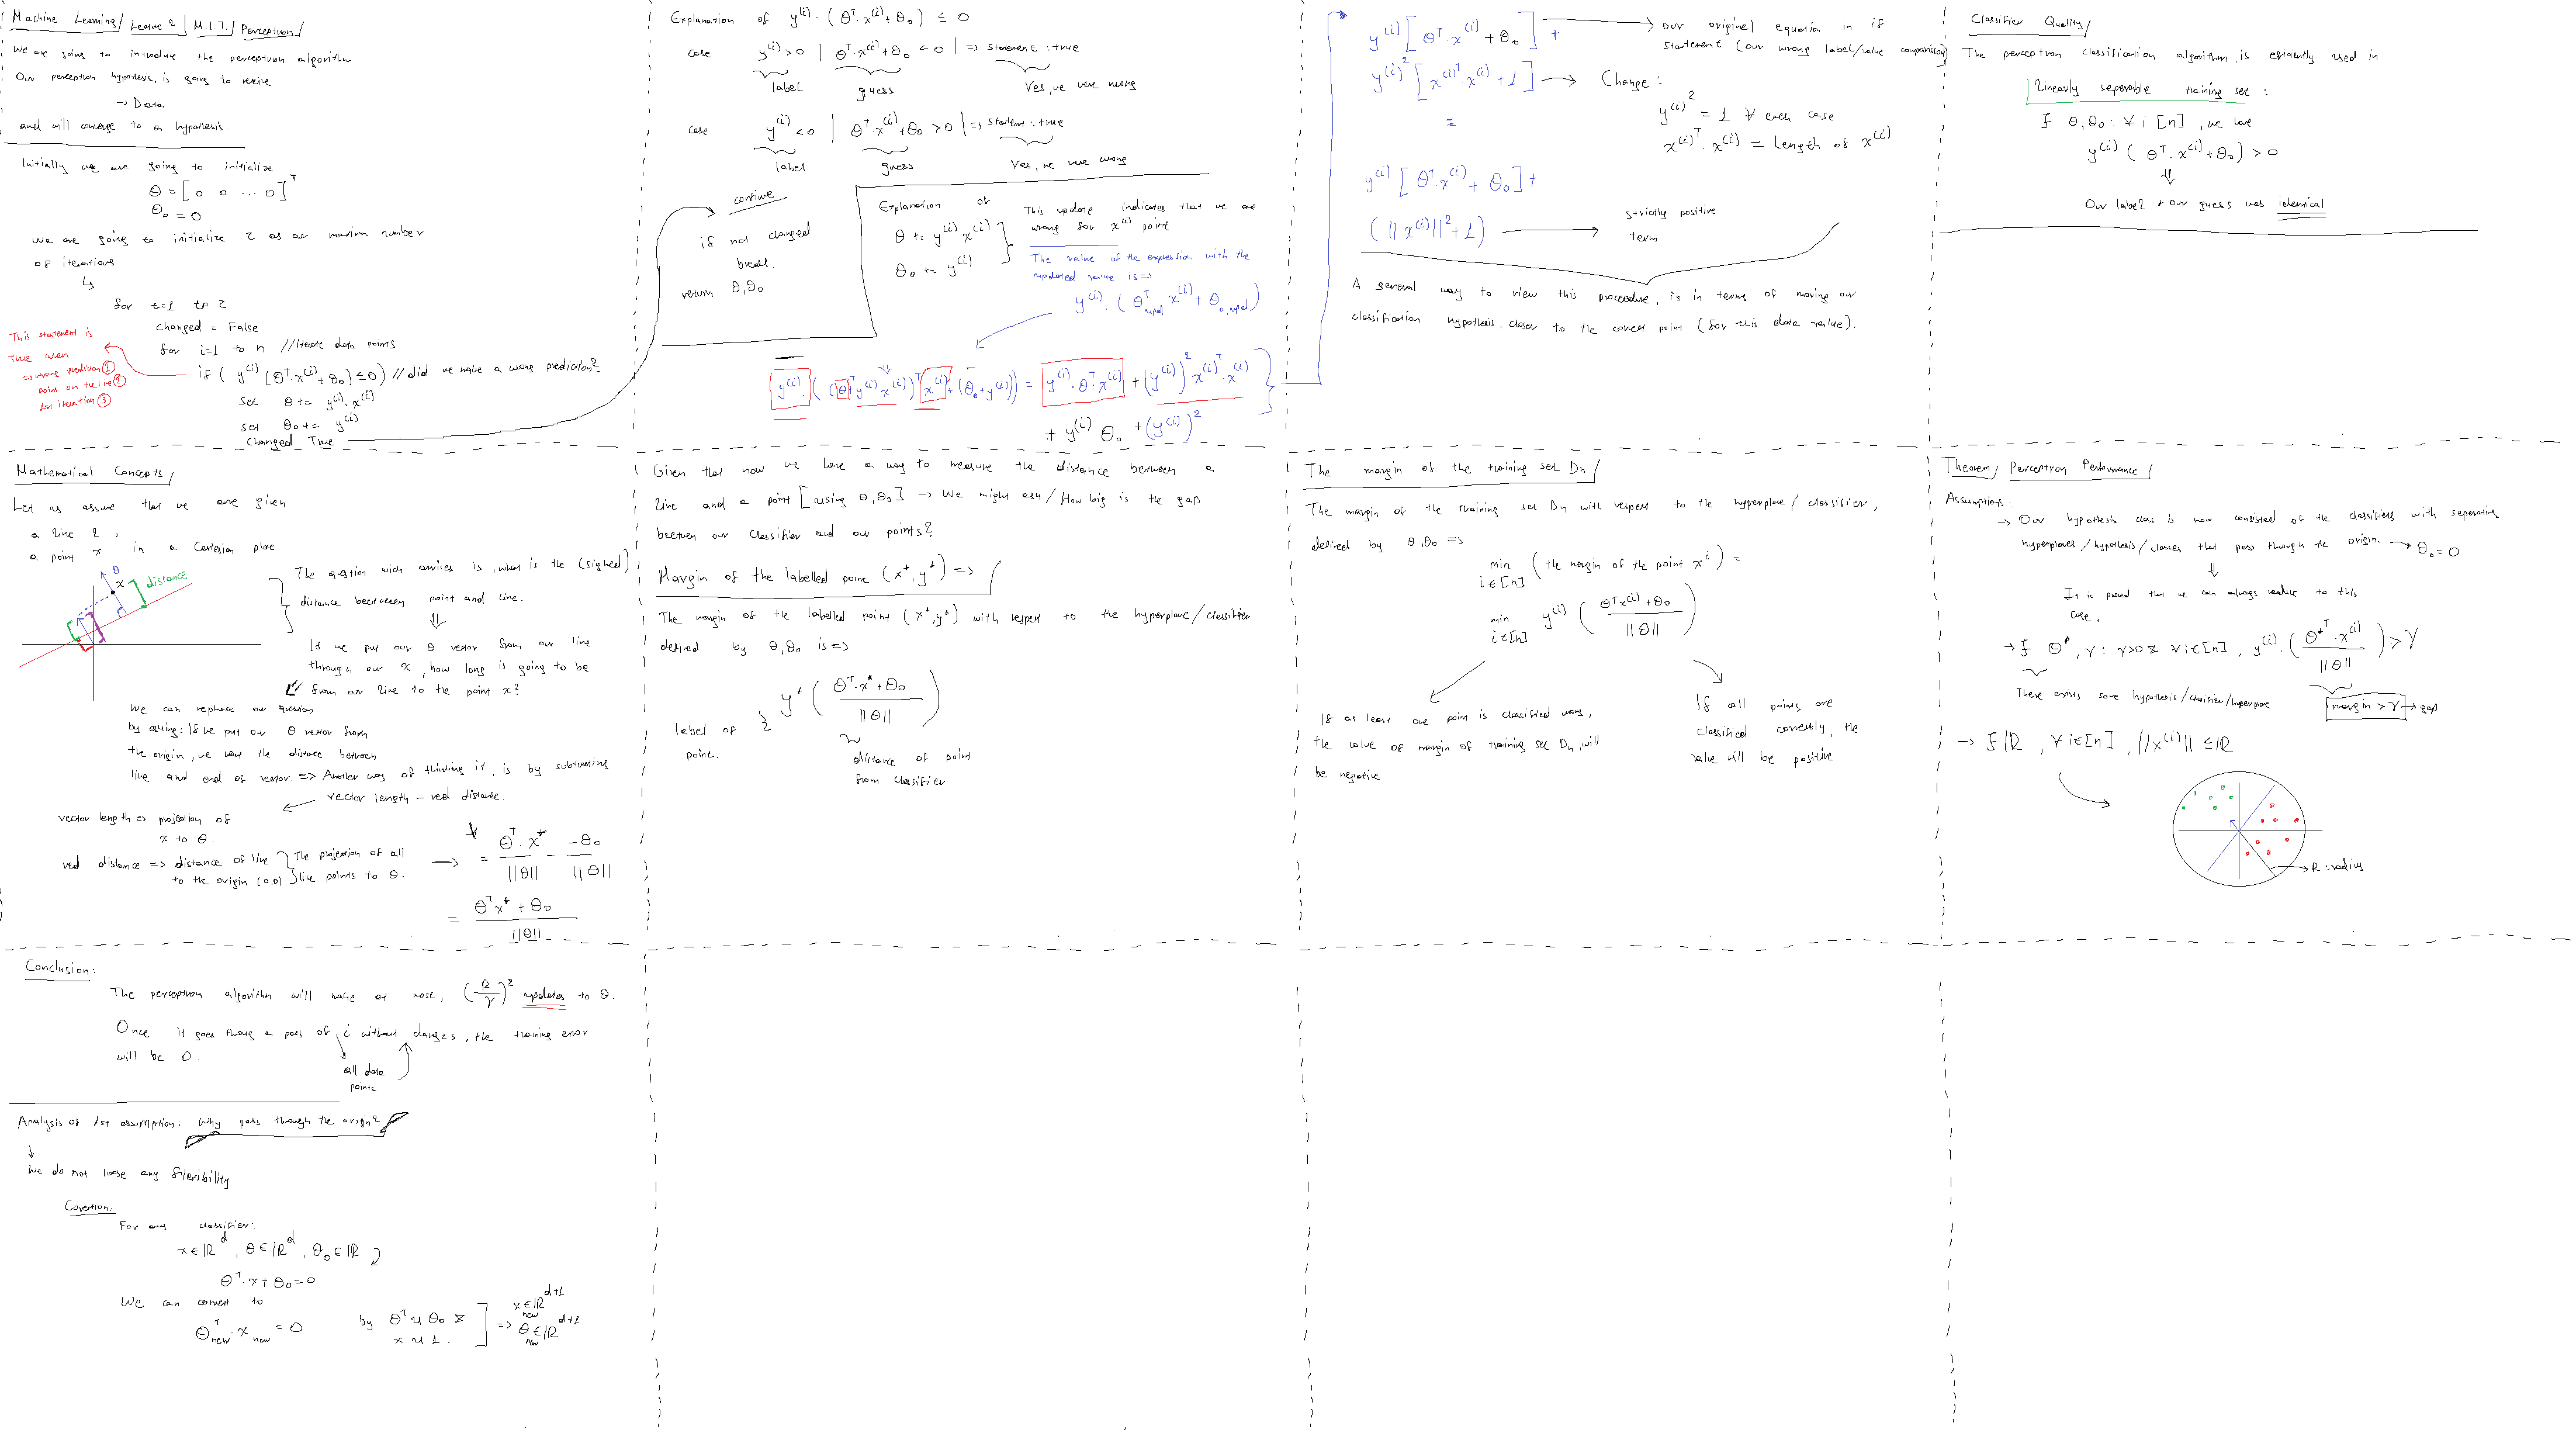 Machine Learning/ Lecture 2/ M.I.T./ Perceptron/
We are going to introduce the perceptron algorithm
Our perceptron hypothesis, is going to receive
→ Data
and will converge to a hypothesis.
Initially we are going to initialize
θ = [0 0 ... 0]^T
θ₀ = 0
We are going to initialize τ as our maximum number
of iterations
↳
for t=1 to τ
changed = False
for i=1 to n //iterate data points
if ( y^(i) (θ^T·x^(i)+θ₀) ≤ 0) // did we make a wrong prediction?
set θ += y^(i)·x^(i)
set θ₀ += y^(i)
changed True
This statement is
true when
⇒ wrong prediction ①
point on the line ②
1st iteration ③
Explanation of y^(i)·(θ^T·x^(i)+θ₀) ≤ 0
case y^(i)>0 | θ^T·x^(i)+θ₀ <0 | => statement: true
label guess Yes, we were wrong
case y^(i)<0 | θ^T·x^(i)+θ₀ >0 | => statement: true
label guess Yes, we were wrong
continue
if not changed
break.
return θ,θ₀
Explanation of
θ += y^(i) x^(i)
θ₀ += y^(i)
This update indicates that we are
wrong for x^(i) point
The value of the expression with the
updated value is =>
y^(i)·(θ^T_upd x^(i) + θ₀,upd)
y^(i)·((θ+y^(i)·x^(i))^T x^(i)+(θ₀+y^(i))) = y^(i)·θ^T x^(i) + (y^(i))² x^(i)T·x^(i)
+ y^(i) θ₀ + (y^(i))²
y^(i)[θ^T·x^(i)+θ₀] +
→ our original equation in if
statement (our wrong label/value comparison)
y^(i)²[x^(i)T·x^(i)+1] → Change:
y^(i)² = 1 ∀ each case
x^(i)T·x^(i) = Length of x^(i)
=
y^(i)[θ^T·x^(i)+θ₀]+
(||x^(i)||²+1) → strictly positive
term
A general way to view this proceedure, is in terms of moving our
classification hypothesis, closer to the correct point (for this data value).
Classifier Quality/
The perceptron classification algorithm, is efficiently used in
Linearly seperable training set:
∃ θ,θ₀: ∀ i [n], we have
y^(i) (θ^T·x^(i)+θ₀) > 0
⇓
Our label + our guess was identical
Mathematical Concepts/
Let us assume that we are given
a line l,
a point x in a Cartesian plane
θ
x
distance
The question wich arrives is, what is the (signed)
distance beetween point and line.
⇓
If we put our θ vector from our line
through our x, how long is going to be
from our line to the point x?
We can rephase our question
by asking: If we put our θ vector from
the origin, we want the distace between
line and end of vector. => Another way of thinking it, is by subtracting
vector length - red distance.
vector length => projection of
x to θ.
red distance => distance of line
to the origin (0,0).
The projection of all
line points to θ.
→ = θ^T·x*/||θ|| - -θ₀/||θ||
= θ^T x* + θ₀ / ||θ||
Given that now we have a way to measure the distance between a
line and a point [using θ,θ₀] → We might ask/ How big is the gap
beetween our classifier and our points?
Margin of the labelled point (x*,y*) =>
The margin of the labelled point (x*,y*) with respect to the hyperplane/classifier
defined by θ,θ₀ is =>
y* (θ^T·x*+θ₀ / ||θ||)
label of
point.
distance of point
from classifier
The margin of the training set Dn/
The margin of the training set Dn with respect to the hyperplane/classifier,
defined by θ,θ₀ =>
min i∈[n] (the margin of the point x^i) =
min i∈[n] y^(i) (θ^T x^(i)+θ₀ / ||θ||)
If at least one point is classified wrong,
the value of margin of training set Dn, will
be negative
If all points are
classified correctly, the
value will be positive
Theorem/ Perceptron Performance/
Assumptions:
→ Our hypothesis class is now consisted of the classifiers with seperating
hyperplanes/hypothesis/classes that pass through the origin. → θ₀=0
⇓
It is proved that we can always reduce to this
case.
→ ∃ θ*, γ: γ>0 & ∀i∈[n], y^(i)·(θ*^T·x^(i) / ||θ||) > γ
There exists some hypothesis/classifier/hyperplane
margin > γ → gap
→ ∃ R, ∀ i∈[n], ||x^(i)|| ≤ R
R: radius
Conclusion:
The perceptron algorithm will make at most, (R/γ)² updates to θ.
Once it goes thoug a pass of i without changes, the training error
will be 0.
all data
points
Analysis of 1st assumption: Why pass though the origin?
We do not loose any flexibility
Covertion.
For any classifier:
x∈R^d, θ∈R^d, θ₀∈R
θ^T·x+θ₀=0
We can convert to
θ^T_new·x_new = 0 by θ^T u θ₀ &
x u 1.
=> x_new∈R^d+1
θ_new∈R^d+1